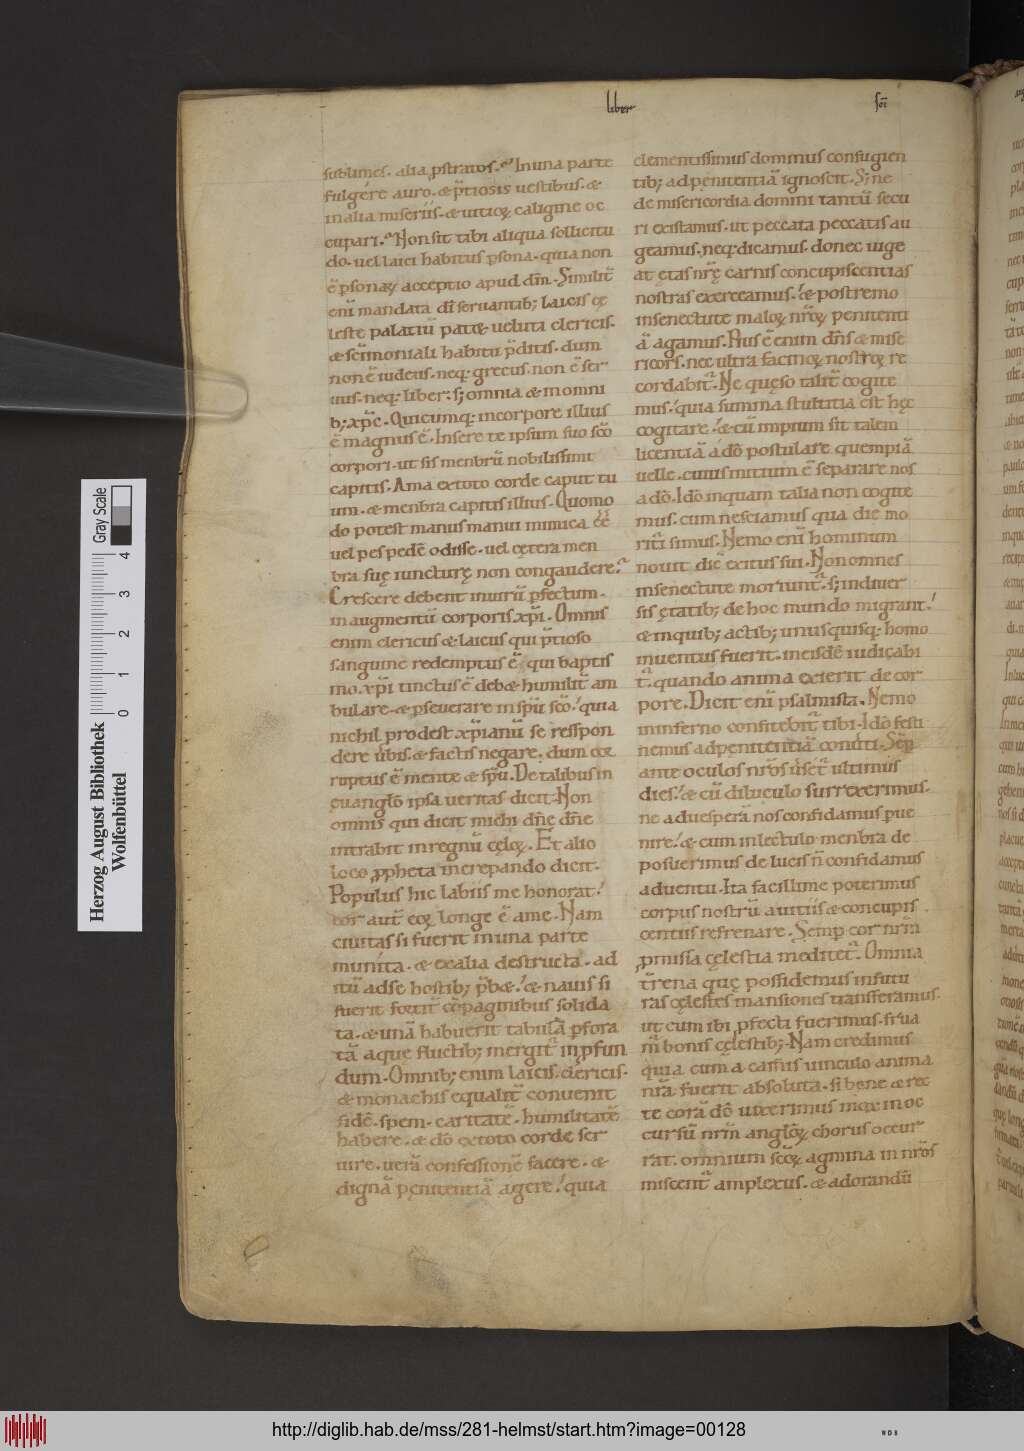 liber
sublimes. alia ꝓstratos. In una parte
fulgére auro. & p̄tiosis uestibus. &
in alia miseriis. & uitioꝝ caligine oc
cupari. Non sit tibi aliqua sollicitu
do. uel laici habitus ꝑsona. quia non
ē ꝑsonaꝝ acceptio apud dm̄. Similit̄
eni mandata dī seruantib; laicis cę
leste palatiū pat& ueluti clericis.
& sc̄imoniali habitu p̄ditis. dum
non ē iudeus. neq; grecus. non ē ser
uus. neq; liber. s; omnia & in omni
b; xp̄c. Quicumq; in corpore illius
ē magnus ē. Insere te ipsum suo sc̄o
corpori. ut sis menbrū nobilissimi
capitis. Ama ex toto corde caput tu
um. & menbra capitis illius. Quomo
do potest manus manui inimica eē
uel pes pedē odisse. uel cętera men
bra suę iuncturę non congaudere.
Crescere debent in uirū ꝑfectum.
in augmentū corporis xp̄i. Omnis
enim clericus & laicus qui p̄tioso
sanguine redemptus ē. qui baptis
mo xp̄i tinctus ē deb& humilit̄ am
bulare. & ꝑseuerare in sp̄u sc̄o. quia
nichil prodest xp̄ianū se respon
dere ūbis. & factis negare. dum cor
ruptus ē mente & sp̄u. De talibus in
euanglō ipsa ueritas dicit. Non
omnis qui dicit michi dn̄e dn̄e
intrabit in regnū cęloꝝ. Et alio
loco ꝓpheta increpando dicit.
Populus hic labiis me honorat.
cor aut̄ eoꝝ longe ē a me. Nam
ciuitas si fuerit in una parte
munita. & ex alia destructa. ad
itū ad se hostib; p̄b&. & nauis si
fuerit fortit̄ cōpaginibus solida
ta. & unā habuerit tabulā ꝑfora
tā aque fluctib; mergit̄ in ꝓfun
dum. Omnib; enim laicis. clericis.
& monachis equalit̄ conuenit
fidē. spem. caritatē. humilitatē
habere. & dō ex toto corde ser
uire. uerā confessionē facere. &
dignā pęnitentiā agere. quia
clementissimus dominus confugien
tib; ad penitentiā ignoscit. S; ne
de misericordia domini tantū secu
ri existamus. ut peccata peccatis au
geamus. neq; dicamus. donec uige
at ętas nr̄ę carnis concupiscentias
nostras exerceamus. & postremo
in senectute maloꝝ nr̄oꝝ penitenti
ā agamus. Pius ē enim dn̄s & mise
ricors. nec ultra facinoꝝ nostroꝝ re
cordabit̄. Ne quęso talit̄ cogite
mus. quia summa stultitia est hęc
cogitare. & cū impium sit talem
licentiā a dō postulare quempiā
uelle. cuius initium ē separare nos
a dō. Idō inquam talia non cogite
mus. cum nesciamus qua die mo
rit̄i simus. Nemo enī hominum
nouit diē exitus sui. Non omnes
in senectute moriunt̄. s; in diuer
sis ętatib; de hoc mundo migrant.
& in quib; actib; unusquisq; homo
inuentus fuerit. in eisdē iudicabi
t̄. quando anima exierit de cor
pore. Dicit enī psalmista. Nemo
in inferno confitebit̄ tibi. Idō festi
nemus ad penitentiā conuti. Semp̄
ante oculos nr̄os uset̄ ultimus
dies. & cū diluculo surrexerimus.
ne ad uesperā nos confidamus pue
nire. & cum in lectulo menbra de
posuerimus de lucis n̄ confidamus
aduentu. Ita facillime poterimus
corpus nostrū a uitiis & concupis
centiis refrenare. Semp̄ cor nr̄m
ꝓmissa cęlestia meditet̄. Omnia
tr̄ena quę possidemus in futu
ras cęlestes mansiones transferamus.
ut cum ibi ꝑfecti fuerimus. frua
m̄ bonis cęlestib;. Nam credimus
quia cum a carnis uinculo anima
nr̄a fuerit absoluta. si bene & rec
te corā dō uixerimus mox in oc
cursū nr̄m angl̄oꝝ chorus occur
rat. omnium sc̄oꝝ agmina in nr̄os
miscent̄ amplexus. & adorandū
Herzog August Bibliothek
Wolfenbüttel
Gray Scale
0 1 2 3 4
http://diglib.hab.de/mss/281-helmst/start.htm?image=00128